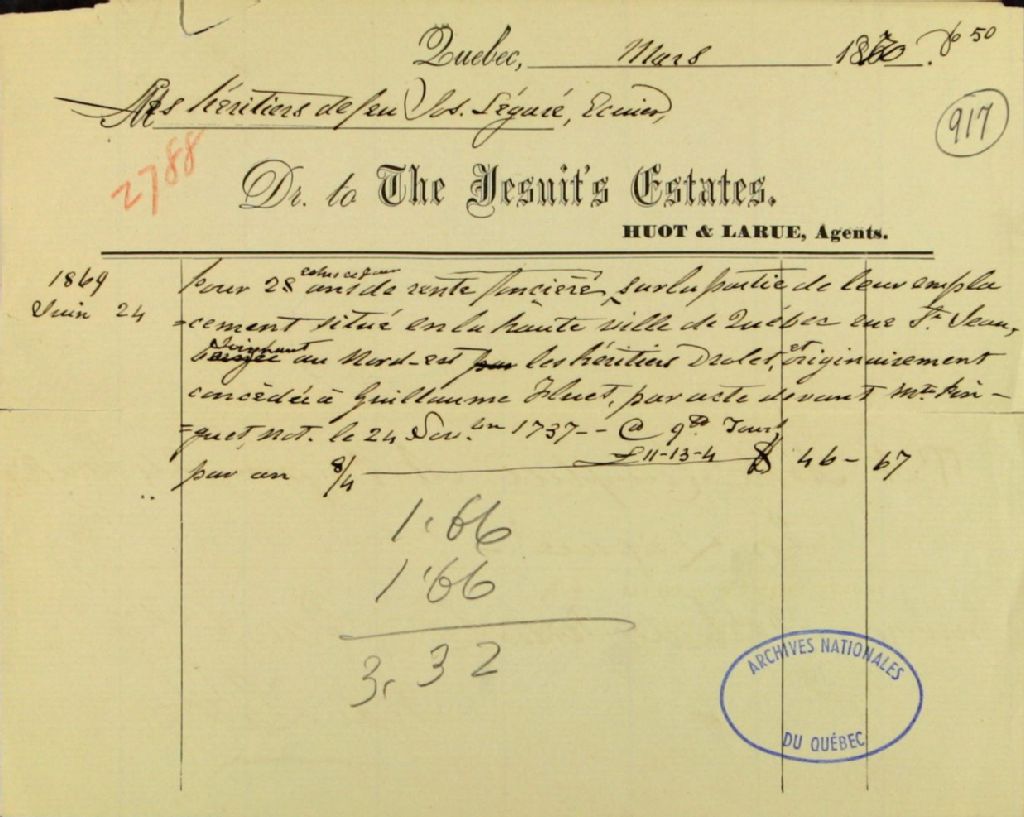 Quebec, Mars 1870. f 50
Les héritiers de feu Jos. Légaré, Ecuier,
917
2788
Dr. to The Jesuit's Estates.
HUOT & LARUE, Agents.
1869
Juin 24
echus ce jour
Pour 28 ans de rente foncière, sur la partie de leur empla
=cement situé en la haute ville de Québec rue St. Jean,
joignant
au Nord-est par les héritiers Drolet, et originairement
concédée à Guillaume Huet, par acte devant Mtre Pin-
=guet, Not. le 24 Nov.bre 1737 -- @ 9 Tour
par an 8/4 £11-13-4 $ 46-67
1.66
1.66
3.32
ARCHIVES NATIONALES
DU QUÉBEC